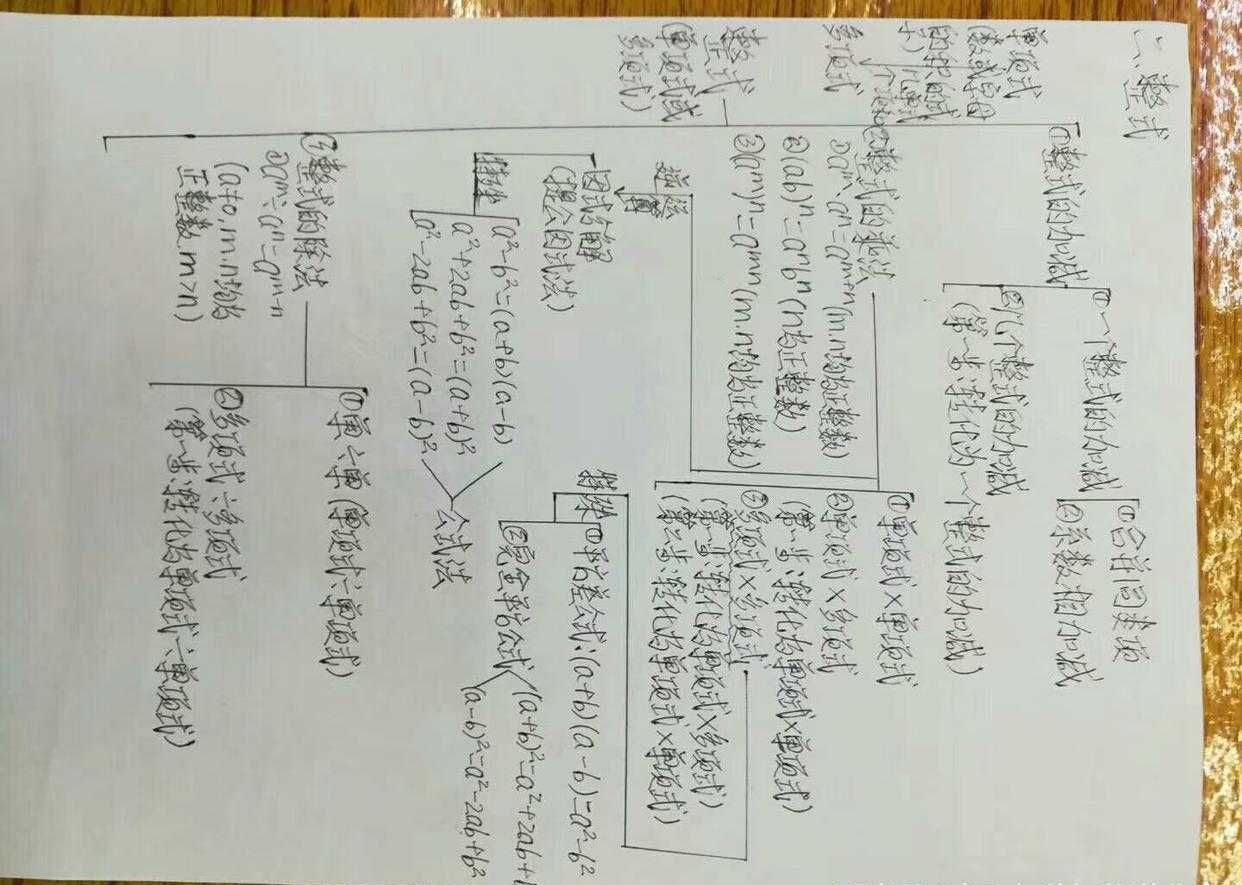 二、整式
单项式
(数或字母
的积的式
子)
↓几个单
个单和
多项式
整式
(单项式或
多项式)
①整式的加减
①一个整式的加减
①合并同类项
②系数相加减
②几个整式的加减
(第一步:转化为一个整式的加减)
②整式的乘法
①a^m·a^n=a^{m+n}(m.n均为正整数)
②(ab)^n=a^nb^n(n为正整数)
③(a^m)^n=a^{mn}(m.n均为正整数)
①单项式×单项式
②单项式×多项式
(第一步:转化为单项式×单项式)
③多项式×多项式
(第一步:转化为单项式×多项式)
(第二步:转化为单项式×单项式)
特殊
①平方差公式:(a+b)(a-b)=a²-b²
②完全平方公式
(a+b)²=a²+2ab+
(a-b)²=a²-2ab+b²
逆运算
因式分解
(提公因式法)
特殊
a²-b²=(a+b)(a-b)
a²+2ab+b²=(a+b)²
a²-2ab+b²=(a-b)²
公式法
③整式的除法
①a^m÷a^n=a^{m-n}
(a≠0,m.n均为
正整数,m>n)
①单÷单(单项式÷单项式)
②多项式÷多项式
(第一步:转化为单项式÷单项式)